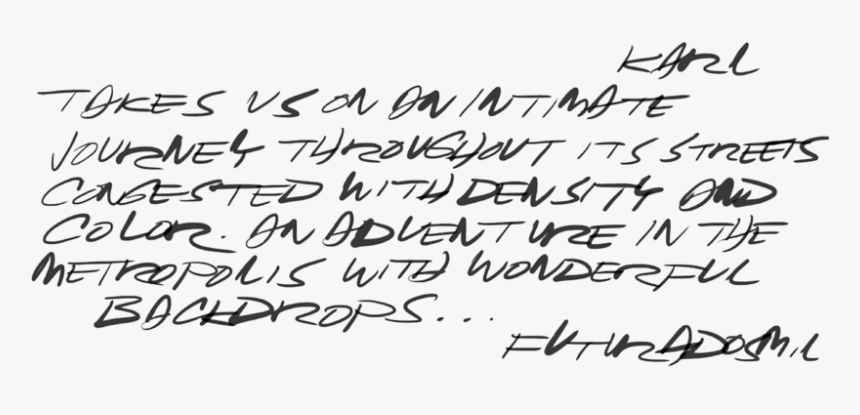 KARL
TAKES US ON AN INTIMATE
JOURNEY THROUGHOUT ITS STREETS
CONGESTED WITH DENSITY AND
COLOR. AN ADVENTURE IN THE
METROPOLIS WITH WONDERFUL
BACKDROPS...
FUTURADOSMIL